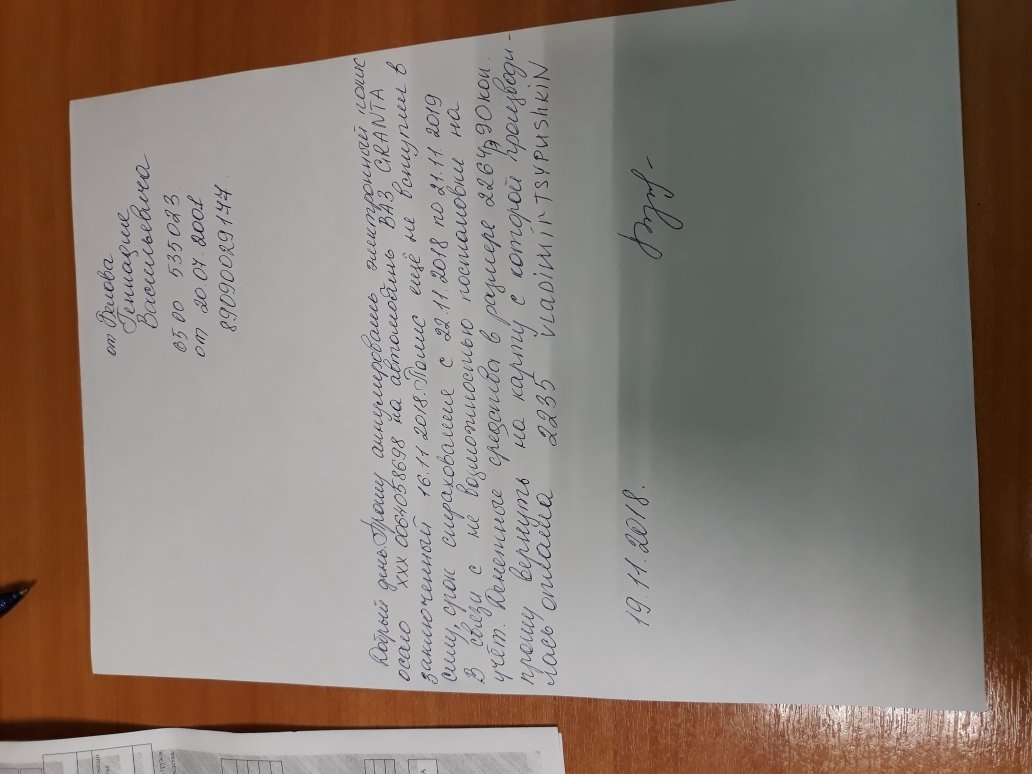 от Белова
Геннадие
Васильевича
6500 535023
от 20.07.2001
89090029144
Добрый день. Прошу аннулировать электронный полис
осаго ХХХ 0061058698 на автомобиль ВАЗ GRANTA
заключенный 16.11.2018. Полис ещё не вступил в
силу, срок страхования с 22.11.2018 по 21.11 2019
В связи с не возможностью постановки на
учёт. Денежные средства в размере 2264р 90коп.
прошу вернуть на карту с которой производи-
лась оплата 2235 VLADIMIR TSYPUSHKIN
19.11.2018.